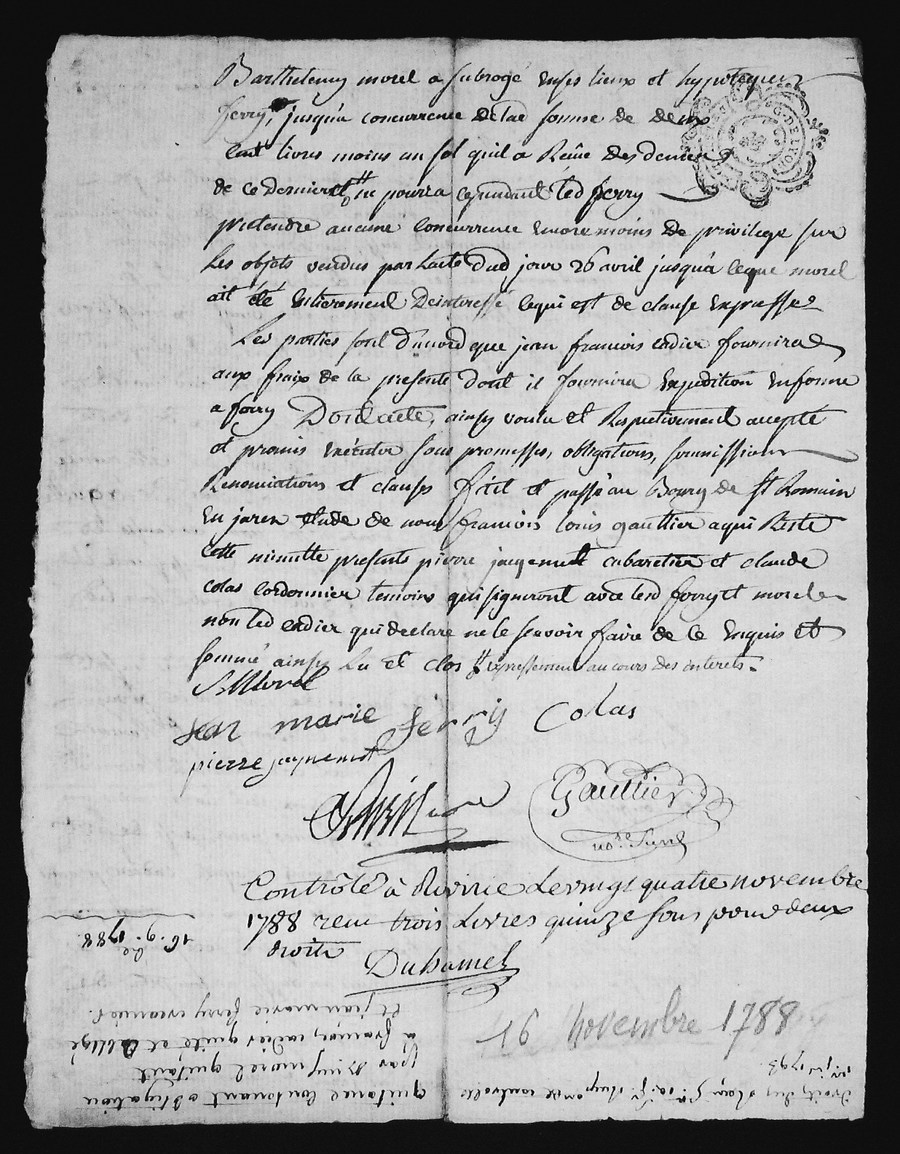 Barthelemy morel a subrogé enses lieux et hypoteques
ferry, jusqu'a concurrence de lad somme de deux
cent livres moins un sol quil a Reçue des deniers
de ce dernier et ne pourra cependant led ferry
pretendre aucune concurrence encore moins de privilege sur
les objets vendus par lacte dud jour 26 avril jusqu'a ceque morel
ait été entierement desinteressé cequi est de clause expresse
Les parties sont d'accord que jean francois cadier fournira
aux fraix de la presente dont il fournira expedition enforme
a ferry Dont acte, ainsy voulu et Respectivement accepté
et promis executer sous promesses, obligations, soumissions
Renonciations et clauses fait et passé au Bourg de st Romain
en jarez etude de nous francois louis gaultier a qui Reste
cette minutte presents pierre jaquemot cabaretier et claude
colas cordonnier temoins qui signeront avec lesd ferry et morel
non led cadier qui declare ne le scavoir faire de ce enquis et
sommé ainsy Lu et clos expressement au cours des interets.
B Morel
jean marie ferry colas
pierre jaquemot
Gaultier
no.re
Controlé à Rivirie Levingt quatre novembre
1788 reçu trois Livres quinze sous pour deux
droits
Duhamel
16 Novembre 1788
16. 9.bre
1788.
quitance contenant obligation
par morel quitant
a françois cadier quité et obligé
et jean marie ferry creancier.
G. DE LYON